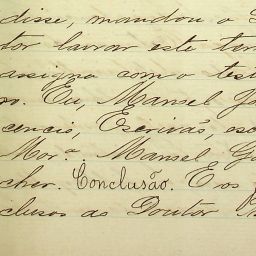 disse, mandou o
tor lavrar este ter
assigna com o test
Eu, Manoel
cencio, Escrivão, esc
Mor.ª Manoel
cher. Conclusão. E os
clusos ao Doutor